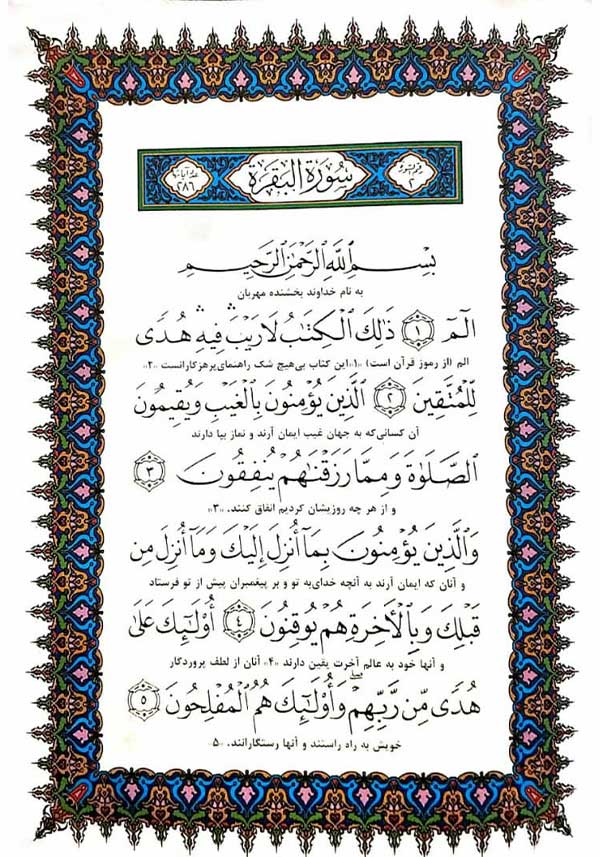 رقم السورة ٢
سُورَةُ الْبَقَرَةِ
عدد آیاتها ٢٨٦
بِسْمِ ٱللَّهِ ٱلرَّحْمَٰنِ ٱلرَّحِيمِ
به نام خداوند بخشنده مهربان
الٓمٓ ﴿١﴾ ذَٰلِكَ ٱلْكِتَٰبُ لَا رَيْبَ ۛ فِيهِ ۛ هُدًى
الم (از رموز قرآن است) «۱» این کتاب بی‌هیچ شک راهنمای پرهزکارانست «۲»
لِّلْمُتَّقِينَ ﴿٢﴾ ٱلَّذِينَ يُؤْمِنُونَ بِٱلْغَيْبِ وَيُقِيمُونَ
آن کسانی‌که به جهان غیب ایمان آرند و نماز بپا دارند
ٱلصَّلَوٰةَ وَمِمَّا رَزَقْنَٰهُمْ يُنفِقُونَ ﴿٣﴾
و از هر چه روزیشان کردیم انفاق کنند. «۳»
وَٱلَّذِينَ يُؤْمِنُونَ بِمَآ أُنزِلَ إِلَيْكَ وَمَآ أُنزِلَ مِن
و آنان که ایمان آرند به آنچه خدای‌به تو و بر پیغمبران پیش از تو فرستاد
قَبْلِكَ وَبِٱلْأَخِرَةِ هُمْ يُوقِنُونَ ﴿٤﴾ أُو۟لَٰٓئِكَ عَلَىٰ
و آنها خود به عالم آخرت یقین دارند «۴» آنان از لطف پروردگار
هُدًى مِّن رَّبِّهِمْ ۖ وَأُو۟لَٰٓئِكَ هُمُ ٱلْمُفْلِحُونَ ﴿٥﴾
خویش به راه راستند و آنها رستگارانند. «۵»